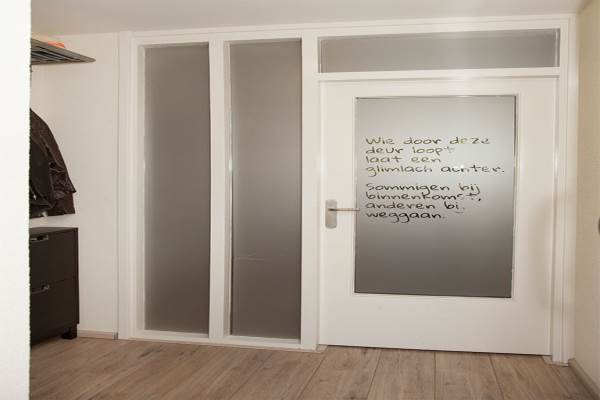 Wie door deze
deur loopt
laat een
glimlach achter.
Sommigen bij
binnenkomst,
anderen bij
weggaan.